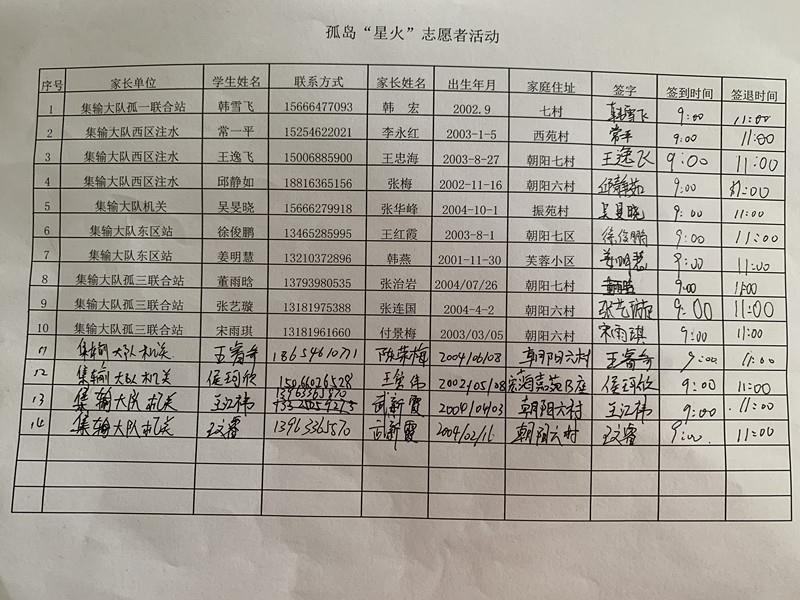 孤岛“星火”志愿者活动
序号 家长单位 学生姓名 联系方式 家长姓名 出生年月 家庭住址 签字 签到时间 签退时间
1 集输大队孤一联合站 韩雪飞 15666477093 韩 宏 2002.9 七村 韩雪飞 9:00 11:00
2 集输大队西区注水 常一平 15254622021 李永红 2003-1-5 西苑村 常平 9:00 11:00
3 集输大队西区注水 王逸飞 15006885900 王忠海 2003-8-27 朝阳七村 王逸飞 9:00 11:00
4 集输大队西区注水 邱静如 18816365156 张梅 2002-11-16 朝阳六村 邱静茹 9:00 11:00
5 集输大队机关 吴旻晓 15666279918 张华峰 2004-10-1 振苑村 吴旻晓 9:00 11:00
6 集输大队东区站 徐俊鹏 13465285995 王红霞 2003-8-1 朝阳七区 徐俊鹏 9:00 11:00
7 集输大队东区站 姜明慧 13210372896 韩燕 2001-11-30 芙蓉小区 姜明慧 9:00 11:00
8 集输大队孤三联合站 董雨晗 13793980535 张治岩 2004/07/26 朝阳七村 9:00 11:00
9 集输大队孤三联合站 张艺璇 13181975388 张连国 2004-4-2 朝阳六村 张艺璇 9:00 11:00
10 集输大队孤三联合站 宋雨琪 13181961660 付景梅 2003/03/05 朝阳六村 宋雨琪 9:00 11:00
11 集输大队机关 王睿奇 18654610771 陈荣梅 2004/06/08 朝阳六村 王睿奇 9:00 11:00
12 集输大队机关 侯珂欣 15066026528 2002/05/08 B座 侯珂欣 9:00 11:00
13 集输大队机关 王江祎 13963365870 武新霞 朝阳六村 王江祎 9:00 11:00
14 集输大队机关 王文睿 13963365870 武新霞 2004/02/16 朝阳六村 王文睿 9:00 11:00